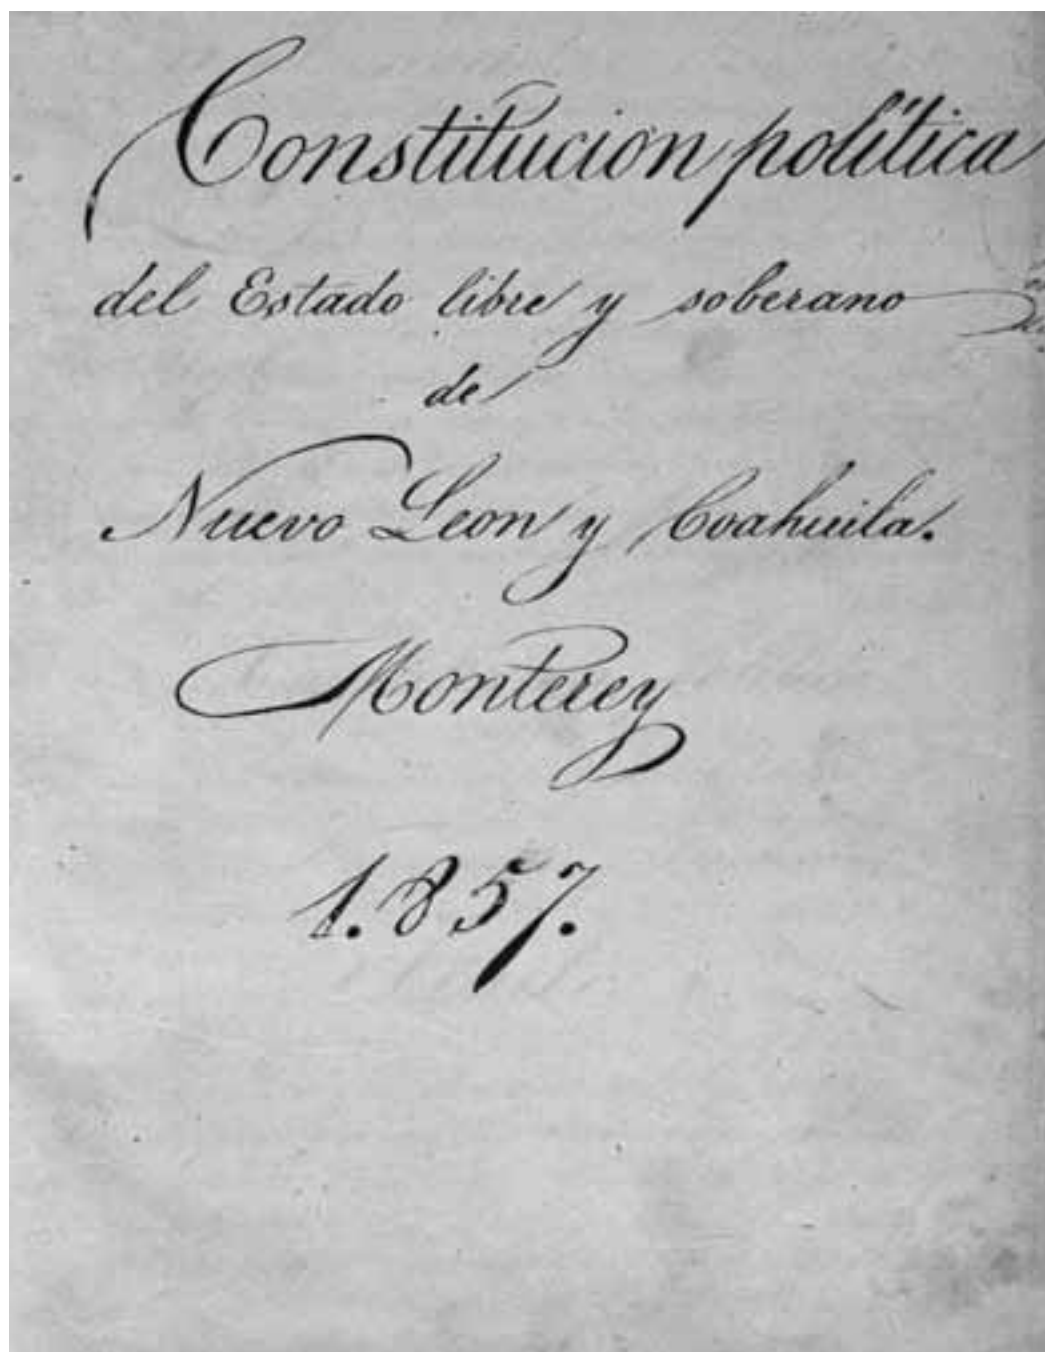 Constitucion política
del Estado libre y soberano
de
Nuevo Leon y Coahuila.
Monterey
1.857.